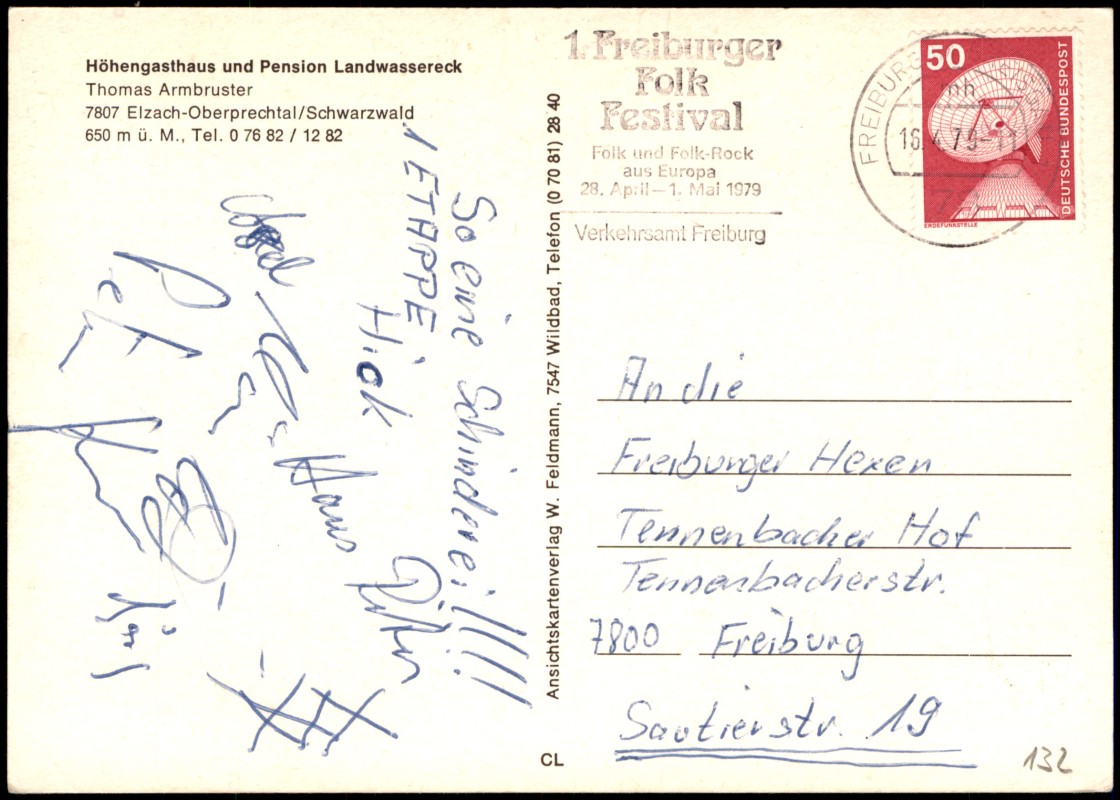 Höhengasthaus und Pension Landwassereck
Thomas Armbruster
7807 Elzach-Oberprechtal/Schwarzwald
650 m ü. M., Tel. 0 76 82 / 12 82
So eine Schinderei!!!!
1 ETAPPE
Hiok
Hans
Peter
Ansichtskartenverlag W. Feldmann, 7547 Wildbad, Telefon (0 70 81) 28 40
CL
1. Freiburger
Folk
Festival
Folk und Folk-Rock
aus Europa
28. April – 1. Mai 1979
Verkehrsamt Freiburg
FREIBURG
nh
16.4.79-11
50
DEUTSCHE BUNDESPOST
ERDEFUNKSTELLE
An die
Freiburger Hexen
Tennenbacher Hof
Tennenbacherstr.
7800 Freiburg
Sautierstr. 19
132